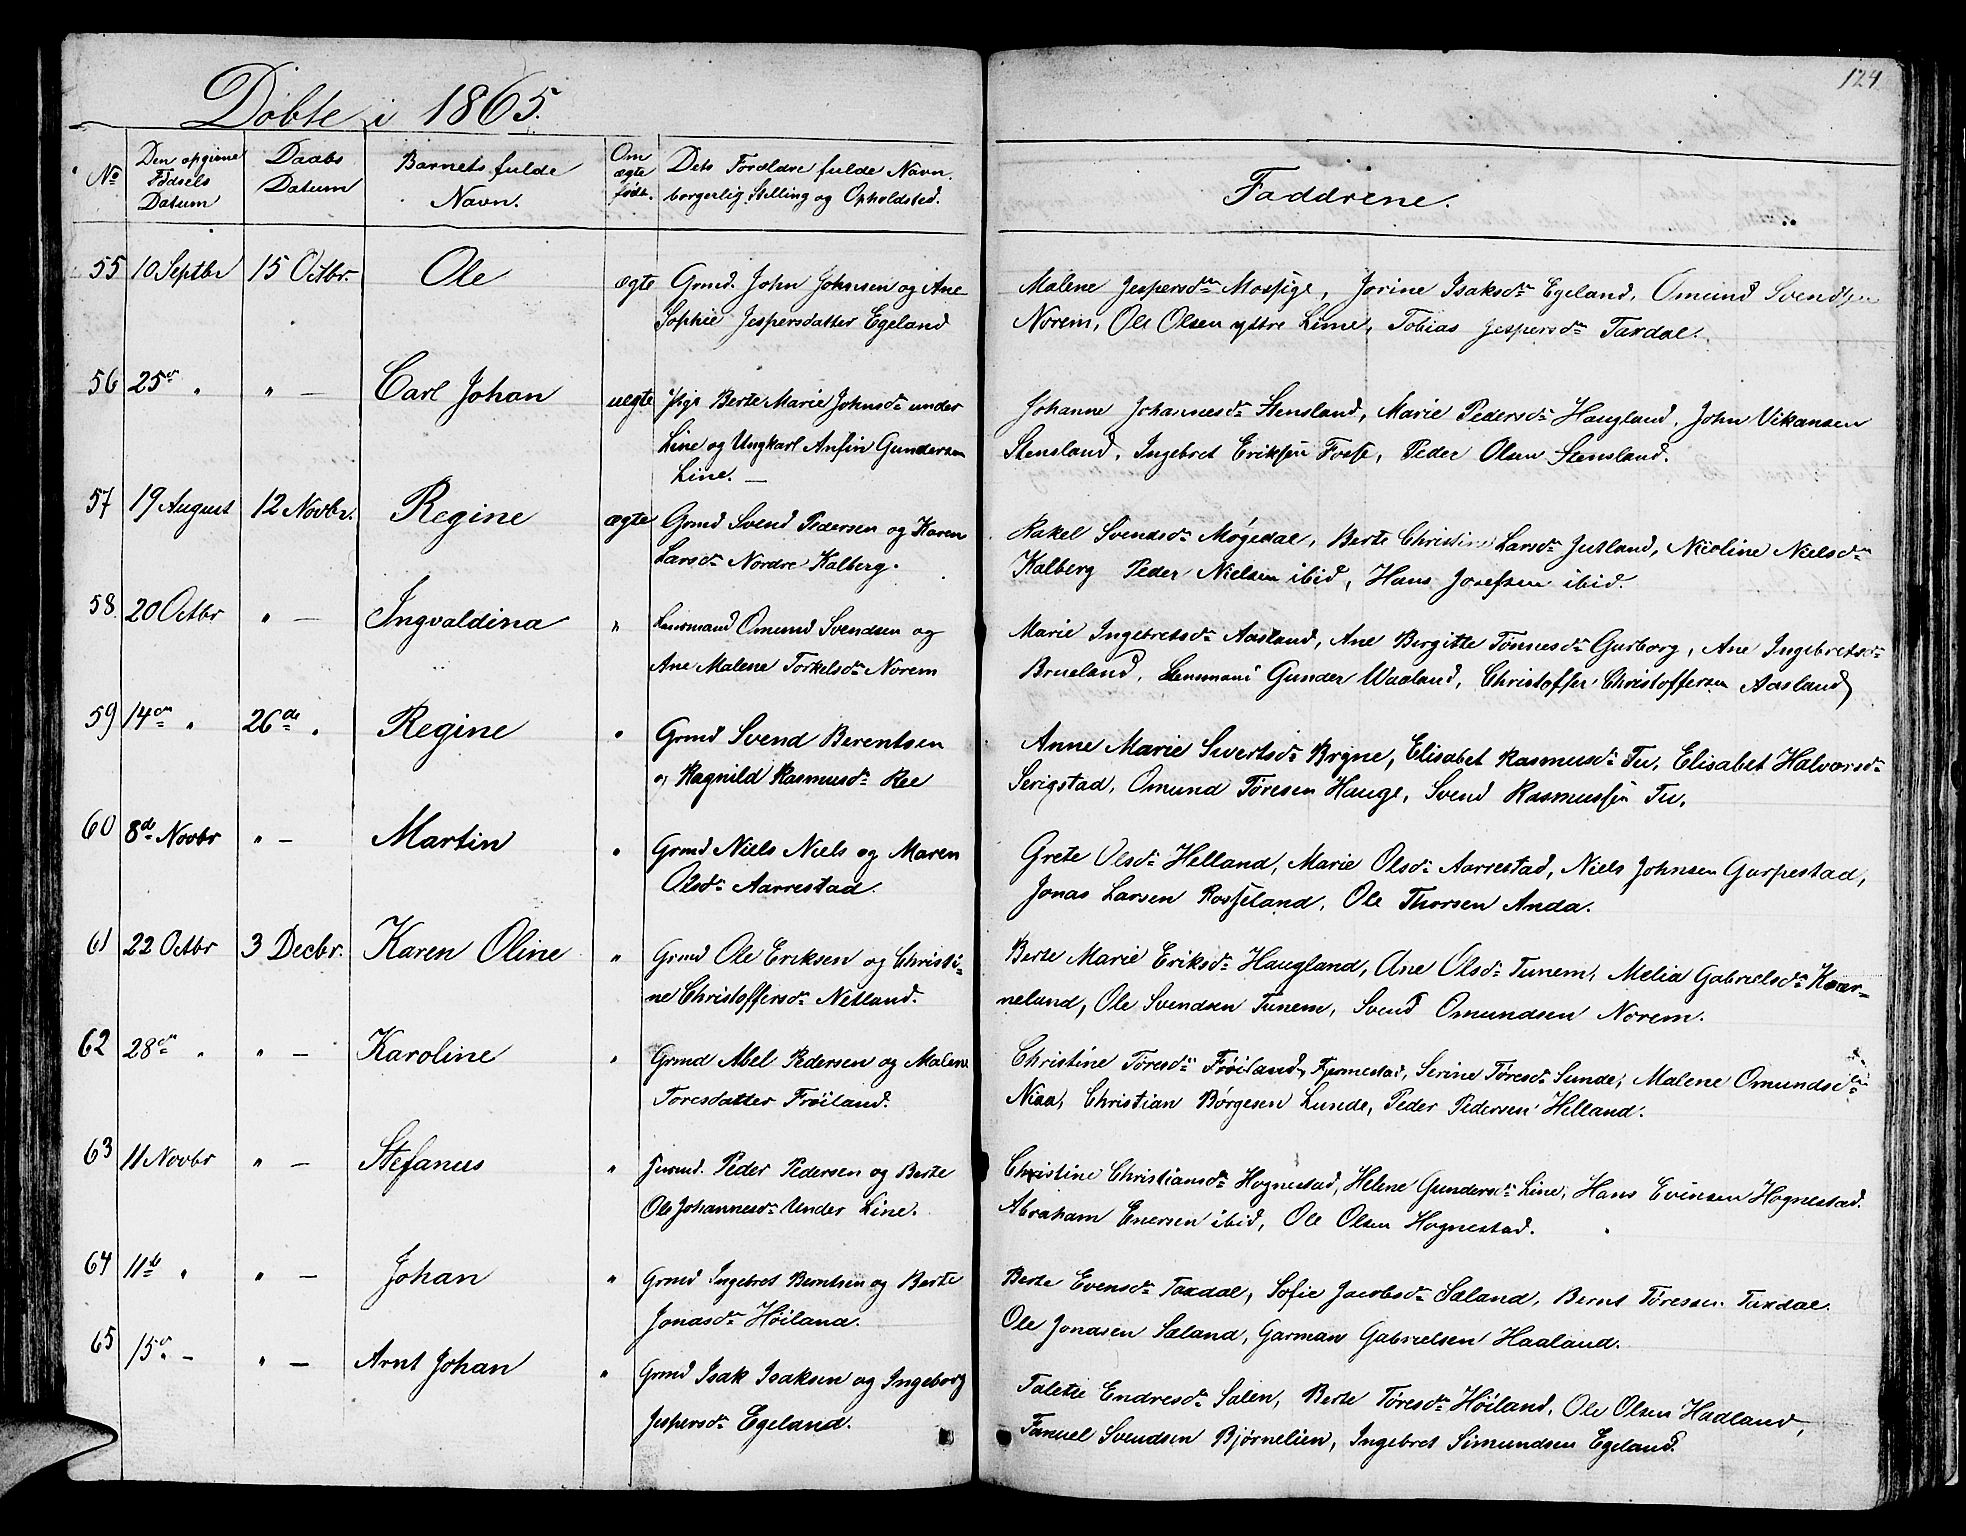 Døbte i 1865.
124
No
Den opgivne Fødsels Datum
Daabs Datum
Barnets fulde Navn.
Om ægte født.
Dets Forældre fulde Navn.
borgerlig Stilling og Opholdsted.
Faddrene.
55 10 Septbr 15 Octbr. Ole ægte Grmd. John Johnsen og Ane
Sophie Jespersdatter Egeland
Malene Jespersdr Mossige, Jorine Isaksdr Egeland, Omund Svendsen
Norem, Ole Olsen yttre Lime, Tobias Jespersdn Taxdal.
56 25de " " — Carl Johan uegte Pige Berte Marie Johnsdr under
Line og Ungkarl Anfin Gundersen
Line. —
Johanne Johannesdr Stensland, Marie Pedersdr Haugland, John Vikansen
Stensland, Ingebret Eriksen Fosse, Peder Olsen Stensland.
57 19 August 12 Novbr. Regine ægte Grmd Svend Pedersen og Karen
Larsdr Nordre Kalberg.
Rakel Svendsdr Møgedal, Berte Christine Larsdr Jutland, Nicoline Nielsdr
Kalberg Peder Nielsen ibid, Hans Josefsen ibid.
58. 20 Octbr " — Ingvaldina " Lensmand Omund Svendsen og
Ane Malene Torkelsdr Norem
Marie Ingebretsdr Aasland, Ane Bergitte Tønnesdr Garborg, Ane Ingebretsdr
Brueland, Lensmand Gunder Waaland, Christoffer Christoffersen Aasland
59 14de " 26de " Regine " Grmd Svend Berentsen
og Ragnild Rasmusdr Ree
Anne Marie Sivertsdr Bryne, Elisabet Rasmusdr Tu, Elisabet Halvorsdr
Serigstad, Omund Tøresen Hauge, Svend Rasmussen Tu.
60 8de Novbr " — Martin " Grmd Niels Niels og Maren
Olsdr Aarrestad.
Grete Olsdr Helland, Marie Olsdr Aarrestad, Niels Johnsen Garpestad,
Jonas Larsen Rosseland, Ole Thorsen Anda.
61 22 Octbr 3 Decbr. Karen Oline " Grmd Ole Eriksen og Christi-
ne Christoffersdr Netland.
Berte Marie Eriksdr Haugland, Ane Olsdr Tunem, Melia Gabrielsdr Kvær-
neland, Ole Svendsen Tunem, Svend Omundsen Norem.
62 28de " " — Karoline " Grmd Abel Pedersen og Malene
Toresdatter Frøiland.
Christine Toresdr Frøiland, Fjermestad, Serine Tøresdr Sunde, Malene Omundsd
Niaa, Christian Børgesen Lunde, Peder Pedersen Helland.
63 11 Novbr " — Stefanus " Peder Pedersen og Berte
Ole Johannesdr Under Line.
Christine Christiansdr Hognestad, Helene Gundersdr Line, Hans Evinsen Hognestad.
Abraham Enersen ibid, Ole Olsen Hognestad.
64 11te " " — Johan " Grmd Ingebret Berntsen og Berte
Jonasdr Høiland.
Berte Evensdr Taxdal, Sofie Jacobsdr Sæland, Bernt Tøressen Taxdal.
Ole Jonasen Sæland, Garman Gabrielsen Haaland.
65 15de — " — Arnt Johan " Grmd Isak Isaksen og Ingeborg
Jespersdr Egeland.
Taletie Endresdr Salen, Berte Tøresdr Høiland, Ole Olsen Hadland,
Fanuel Svendsen Bjørnelien, Ingebret Simundsen Egeland.